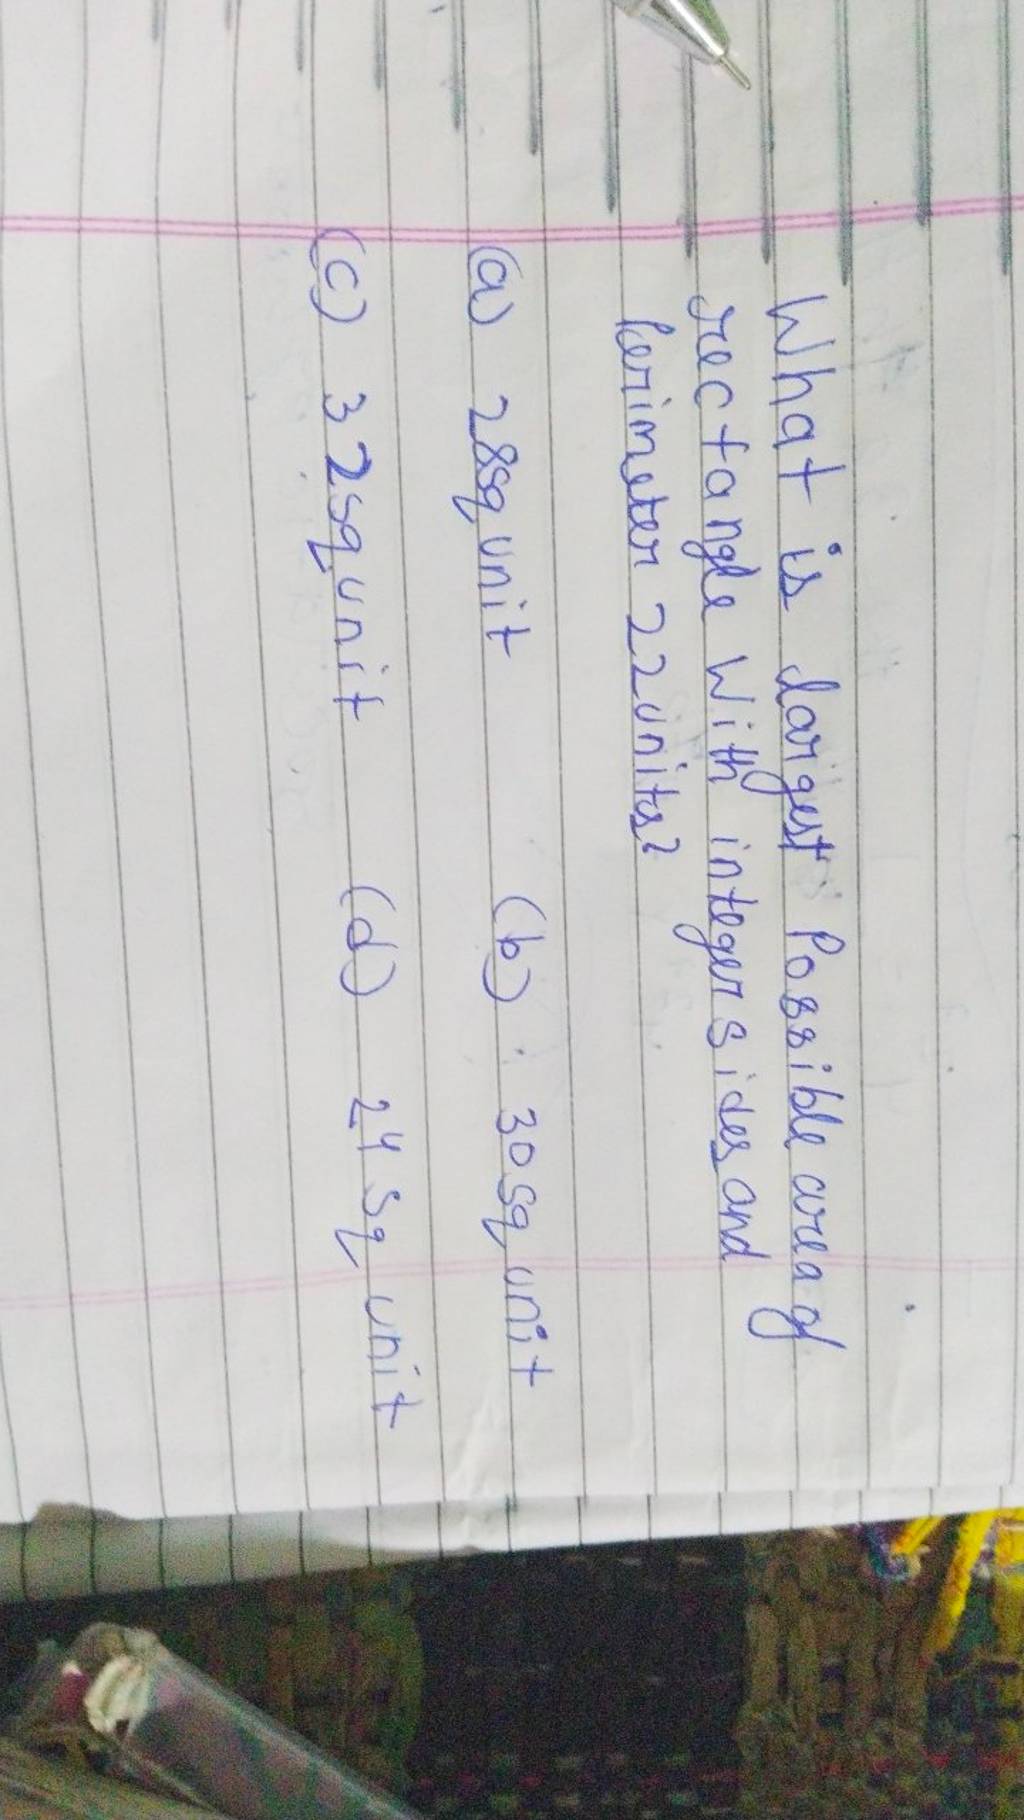 What is largest Possible area of
rectangle With integer sides and
Perimeter 22units?
(a) 28sq unit (b) 30sq unit
(c) 32sq unit (d) 24 sq unit